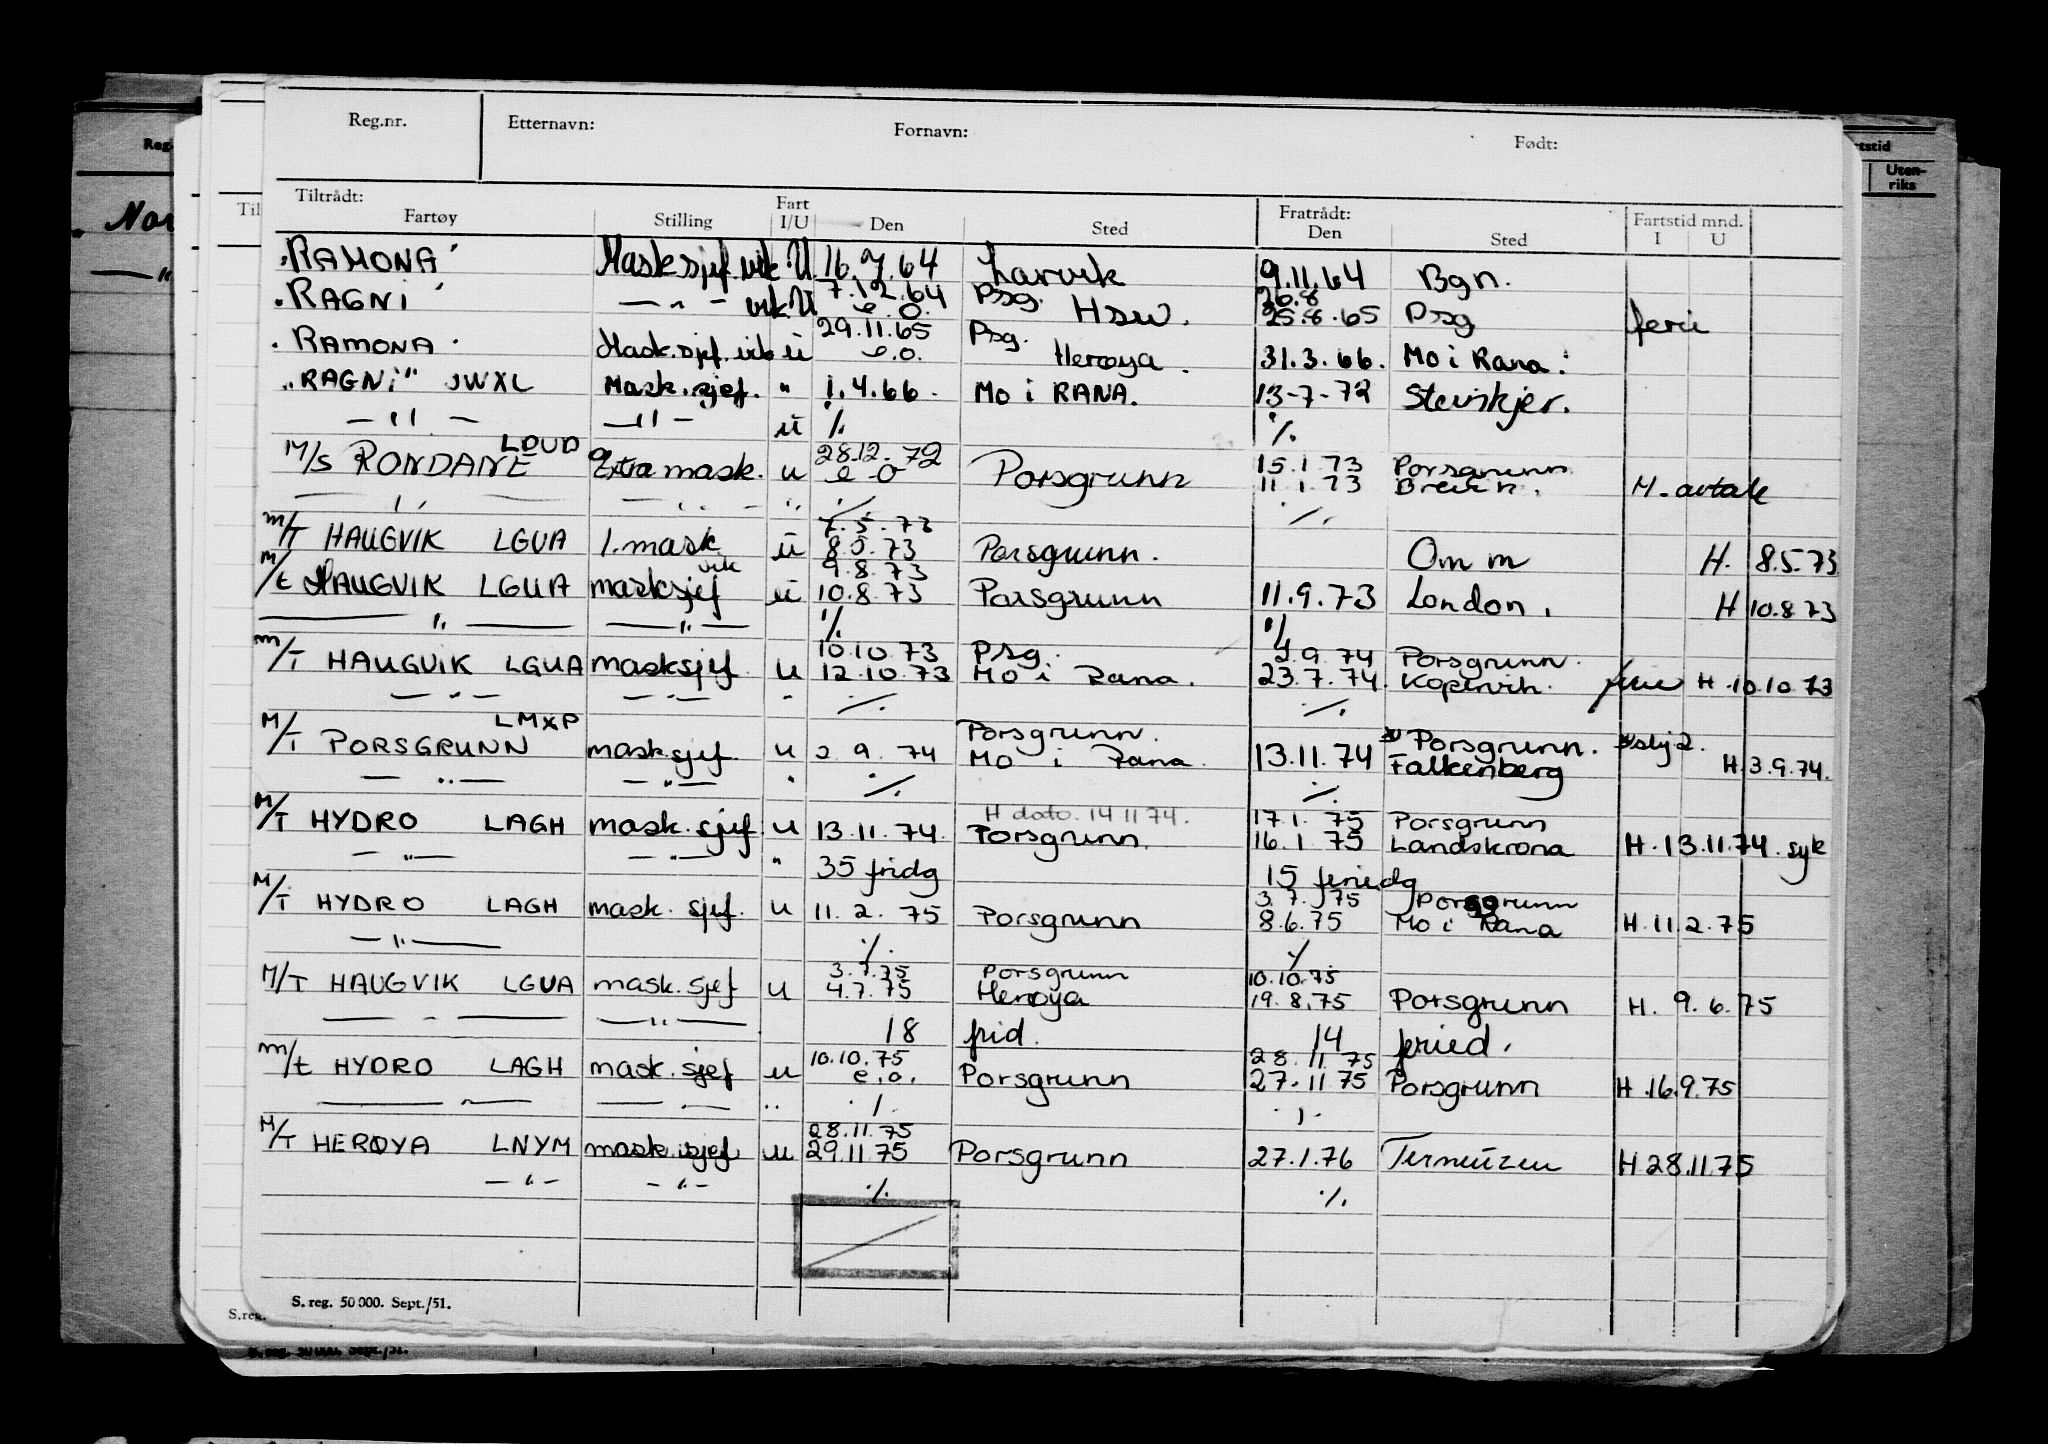 Reg.nr. Etternavn: Fornavn: Født:
Tiltrådt: Fratrådt:
Fartøy Stilling Fart I/U Den Sted Den Sted Fartstid mnd. I U
"RAMONA" Mask.sjef. vik U 16.9.64 Larvik 9.11.64 Bgn.
"RAGNI" — " — vik. U 7.12.64 e.o. Psg. Hsw. 26.8 25.8.65 Psg ferie
"RAMONA" Mask.sjef. vik u 29.11.65 e.o. Psg. Herøya. 31.3.66. Mo i Rana.
"RAGNi" JWXL Mask.sjef. " 1.4.66. Mo i RANA. 13-7-72 Steinkjer.
— " — — " — u ./. ./.
M/S RONDANE LDUD Extra mask. u 28.12.72 e o Porsgrunn 15.1.73 Porsgrunn 11.1.73 Brevik. M-avtale
— " — — " — " ./. ./.
M/T HAUGVIK LGUA 1.mask u 7.5.73 8.5.73 Porsgrunn. Om m H. 8.5.73
M/t HAUGVIK LGUA masksjef vik u 9.8.73 10.8.73 Porsgrunn 11.9.73 London. H 10.8.73
— " — — " — ./. ./.
M/T HAUGVIK LGUA masksjef. u 10.10.73 Psg. 12.10.73 Mo i Rana. 2.9.74 Porsgrunn. 23.7.74. Kopervik. ferie H.10.10.73
— " — — " — " ./. ./.
M/T PORSGRUNN LMXP masksjef. u 2 9.74 Porsgrunn. Mo i Rana. 13.11.74 Porsgrunn. Falkenberg H.3.9.74.
— " — — " — " ./. ./.
M/T HYDRO LAGH mask.sjef. u 13.11.74. H dato. 14 11 74. Porsgrunn. 17.1.75 Porsgrunn 16.1.75 Landskrona H.13.11.74. syk
— " — — " — " 35 fridg 15 feriedg
M/T HYDRO LAGH mask. sjef. u 11.2.75 Porsgrunn 3.7.75 Porsgrunn 8.6.75 Mo i Rana H.11.2.75
— " — ./. ./.
M/T HAUGVIK LGUA mask.sjef u 3.7.75 Porsgrunn 4.7.75 Herøya 10.10.75 19.8.75 Porsgrunn H. 9.6.75
— " — — " — 18 frid. 14 feried.
M/t HYDRO LAGH mask.sjef u 10.10.75 e.o. Porsgrunn 28.11.75 27.11.75 Porsgrunn H.16.9.75
— " — — " — " ./. ./.
M/T HERØYA LNYM mask.sjef u 28.11.75 29.11.75 Porsgrunn 27.1.76 Terneuzen H.28.11.75
— " — — " — ./. ./.
S. reg. 50 000. Sept./51.
Reg
Nor
Til
S.reg.
Uten-
riks